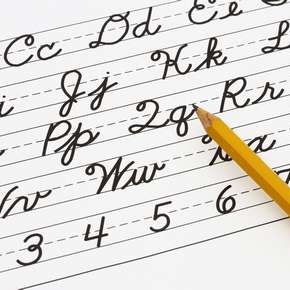 Cc Dd Ee
Jj Kk L
Pp Qq Rr
Vv Ww Xx
3 4 5 6